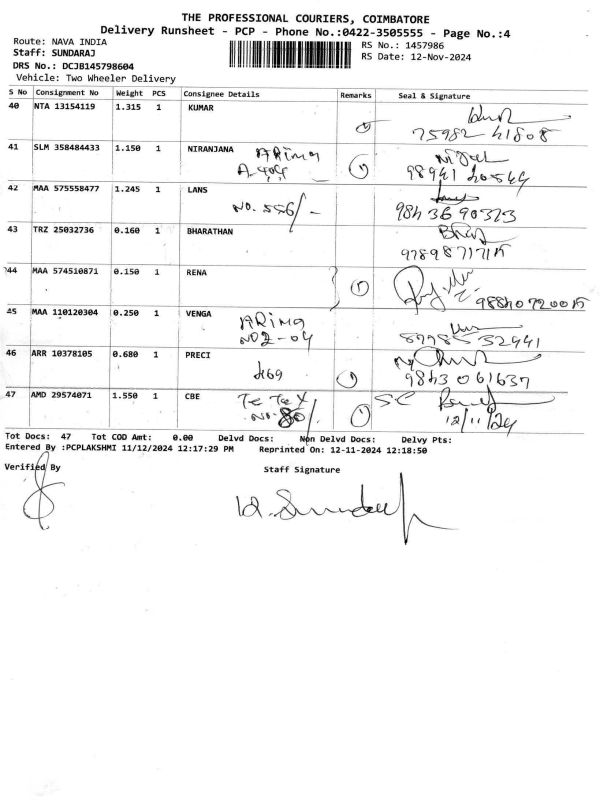 THE PROFESSIONAL COURIERS, COIMBATORE
Delivery Runsheet - PCP - Phone No.:0422-3505555 - Page No.:4
Route: NAVA INDIA
RS No.: 1457986
Staff: SUNDARAJ
RS Date: 12-Nov-2024
DRS No.: DCJB145798604
Vehicle: Two Wheeler Delivery
S No Consignment No Weight PCS Consignee Details Remarks Seal & Signature
40 NTA 13154119 1.315 1 KUMAR
75982 41808
41 SLM 358484433 1.150 1 NIRANJANA ARima
A-404 98941 20544
42 MAA 575558477 1.245 1 LANS
NO. 556/- 9843690323
43 TRZ 25032736 0.160 1 BHARATHAN
44 MAA 574510871 0.150 1 RENA
45 MAA 110120304 0.250 1 VENGA ARima
NO2-04 89985 32441
46 ARR 10378105 0.680 1 PRECI
H69 9843061637
47 AMD 29574071 1.550 1 CBE Te Tex SC
No. 80/. 12/11/24
Tot Docs: 47 Tot COD Amt: 0.00 Delvd Docs: Non Delvd Docs: Delvy Pts:
Entered By :PCPLAKSHMI 11/12/2024 12:17:29 PM Reprinted On: 12-11-2024 12:18:50
Verified By Staff Signature